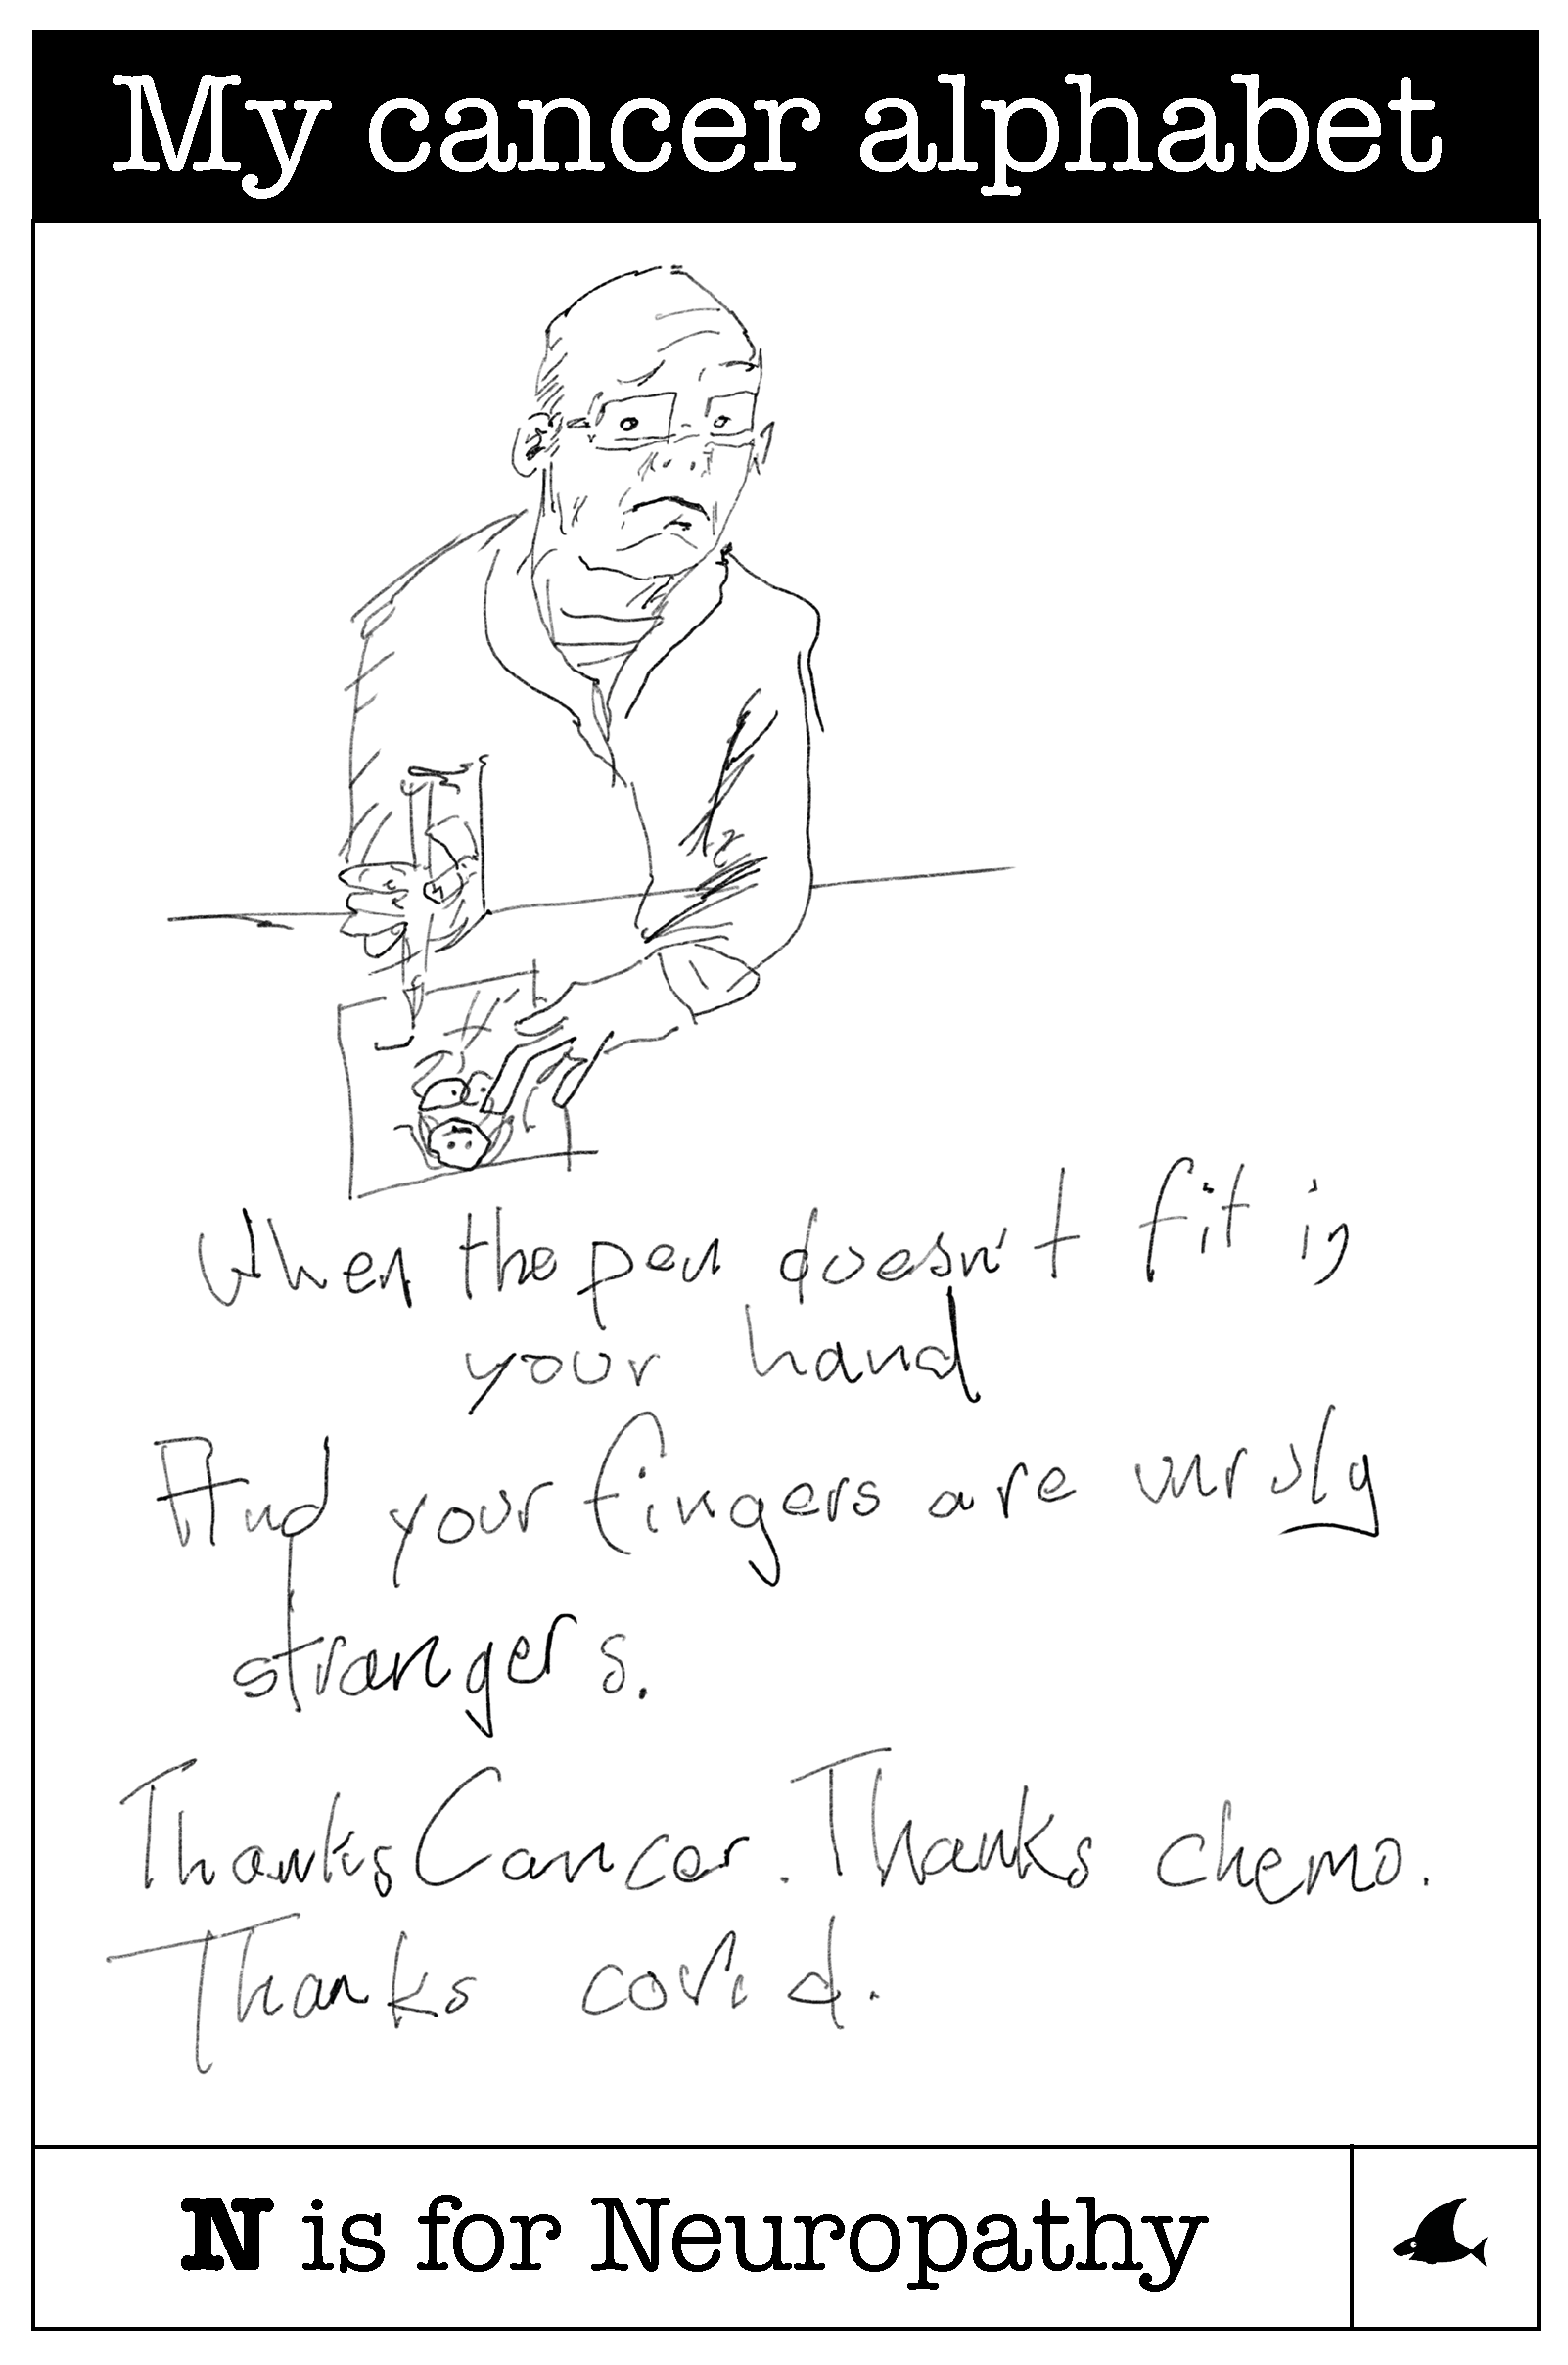 My cancer alphabet
When the pen doesn't fit in
your hand
And your fingers are unruly
strangers.
Thanks Cancer. Thanks chemo.
Thanks covid.
N is for Neuropathy